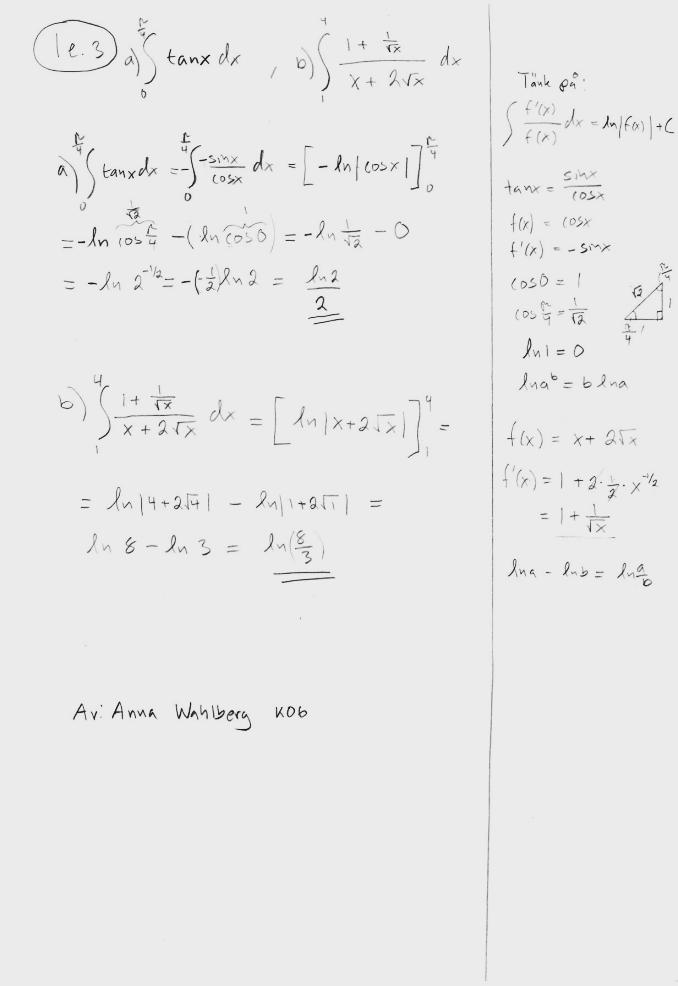 1e.3 a) ∫₀^{π/4} tanx dx , b) ∫₁⁴ (1 + 1/√x)/(x + 2√x) dx
a) ∫₀^{π/4} tanx dx = -∫₀^{π/4} (-sinx/cosx) dx = [-ln|cosx|]₀^{π/4}
= -ln cos π/4 (1/√2) - (ln cos0 (1)) = -ln 1/√2 - 0
= -ln 2^{-1/2} = -(-1/2)ln2 = ln2/2
b) ∫₁⁴ (1 + 1/√x)/(x + 2√x) dx = [ln|x+2√x|]₁⁴ =
= ln|4+2√4| - ln|1+2√1| =
ln 8 - ln 3 = ln(8/3)
Av: Anna Wahlberg K06
Tänk på:
∫ f'(x)/f(x) dx = ln|f(x)|+C
tanx = sinx/cosx
f(x) = cosx
f'(x) = -sinx
cos0 = 1
cos π/4 = 1/√2
√2 π/4 1
π/4 1
ln1 = 0
lna^b = b lna
f(x) = x + 2√x
f'(x) = 1 + 2·1/2·x^{-1/2}
= 1 + 1/√x
lna - lnb = ln a/b